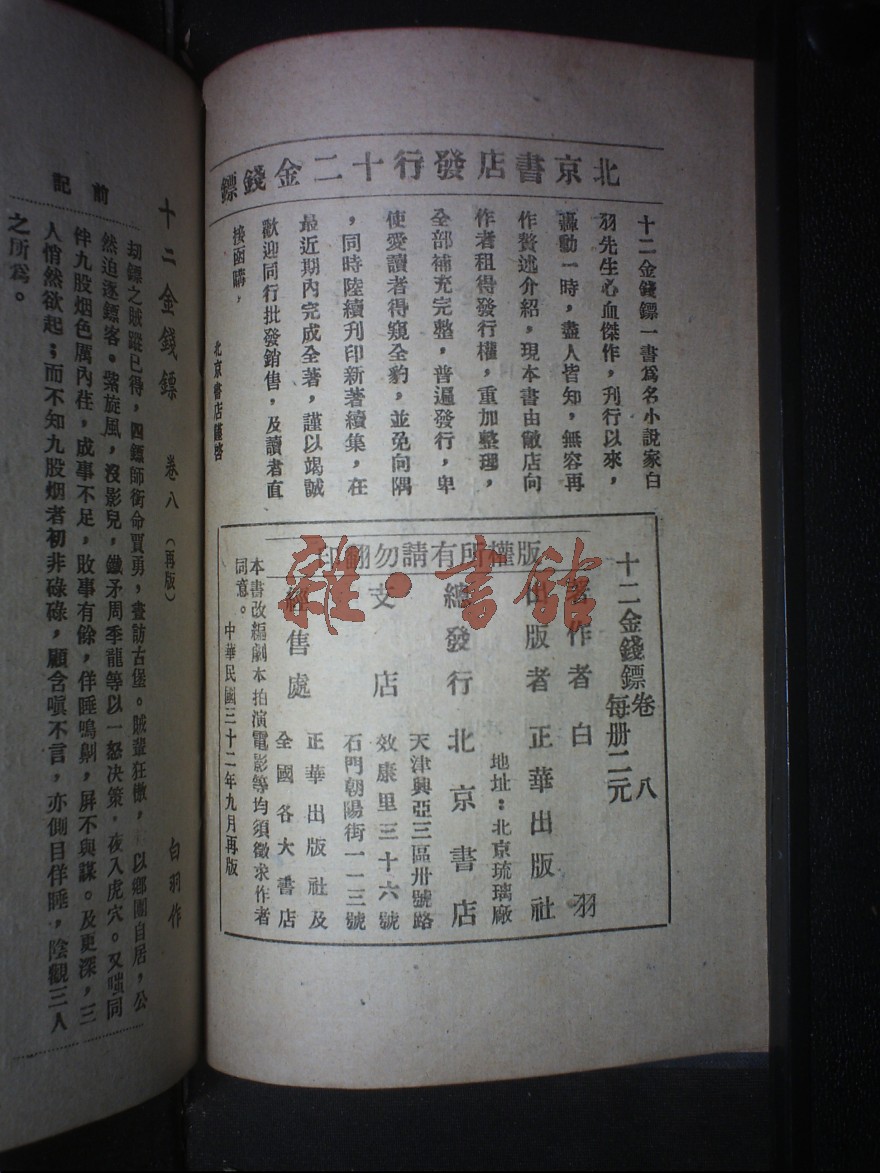 北京書店發行十二金錢鏢
十二金錢鏢一書爲名小說家白
羽先生心血傑作，刊行以來，
轟動一時，盡人皆知，無容再
作贅述介紹，現本書由敝店向
作者租得發行權，重加整理，
全部補充完整，普遍發行，卑
使愛讀者得窺全豹，並免向隅
，同時陸續刊印新著續集，在
最近期內完成全著，謹以竭誠
歡迎同行批發銷售，及讀者直
接函購，
北京書店謹啓
十二金錢鏢卷八
每册二元
版權所有請勿翻印
著作者 白羽
出版者 正華出版社
地址：北京琉璃廠
總發行 北京書店
天津興亞三區卅號路
效康里三十六號
支店
石門朝陽街一一三號
經售處
正華出版社及
全國各大書店
本書改編劇本拍演電影等均須徵求作者
同意。
中華民國三十二年九月再版
雜·書館
十二金錢鏢 卷八（再版） 白羽作
前記
刧鏢之賊蹤已得，四鏢師銜命賈勇，晝訪古堡。賊輩狂傲，以鄉團自居，公
然迫逐鏢客。紫旋風，沒影兒，鐵矛周季龍等以一怒决策，夜入虎穴。又嗤同
伴九股烟色厲內荏，成事不足，敗事有餘，佯睡鳴鼾，屏不與謀。及更深，三
人悄然欲起；而不知九股烟者初非碌碌，顧含嗔不言，亦側目佯睡，陰觀三人
之所爲。